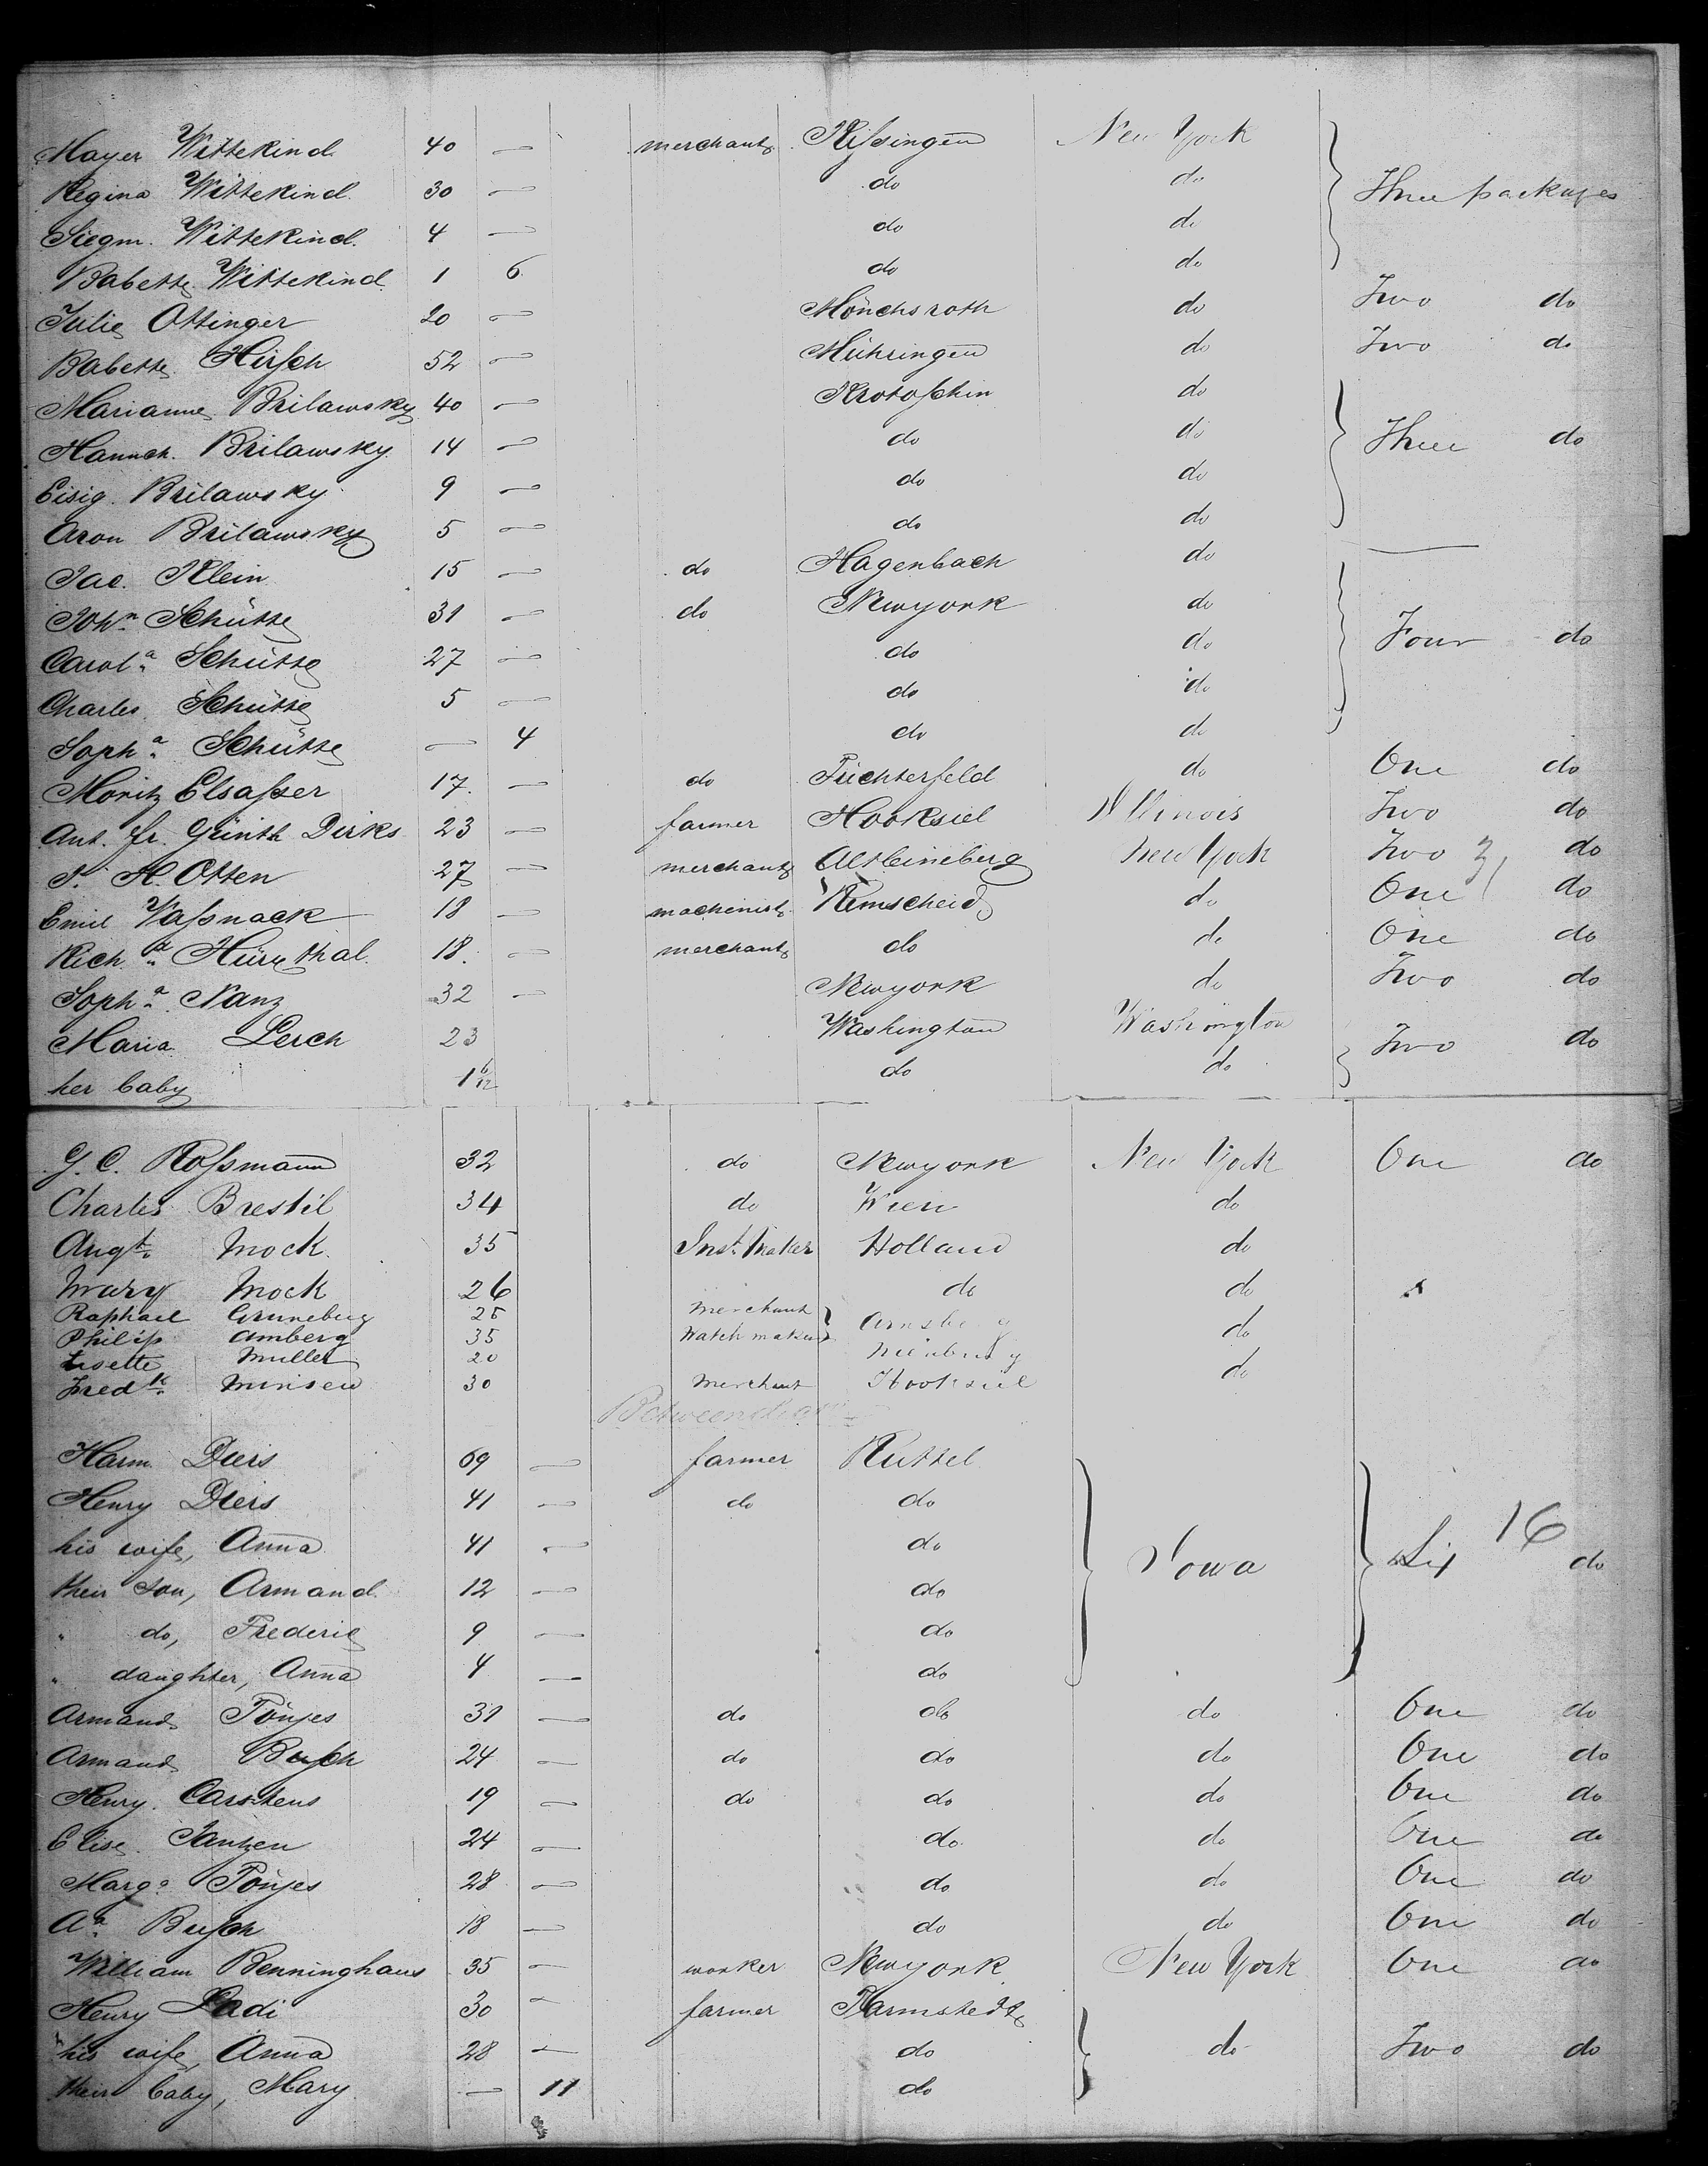 Mayer Wittekind 40 — merchant Kissingen New York
Regina Wittekind 30 — do do Three packages
Siegm. Wittekind 4 — do do
Babette Wittekind 1 6 do do
Julie Ottinger 20 — Mönchsroth do Two do
Babette Hirsch 52 — Mühringen do Two do
Marianne Brilawsky 40 — Krotoschin do
Hannch. Brilawsky 14 — do do Three do
Eisig Brilawsky 9 — do do
Aron Brilawsky 5 — do do
Jac. Klein 15 — do Hagenbach do —
Johⁿ Schütte 31 — do Newyork do
Carolᵃ Schütte 27 — do do Four do
Charles Schütte 5 — do do
Sophᵃ Schütte — 4 do do
Moritz Elsasser 17 — do Füchterfeld do One do
Ant. Fr. Günth Dirks 23 — farmer Hooksiel Illinois Two do
J. H. Otten 27 — merchant New York Two do
Emil Wassnack 18 — machinist Remscheid do One do
Richᵈ Hürxthal 18. — merchant do do One do
Sophᵃ Nanz 32 — Newyork do Two do
Maria Lerch 23 Washington Washington Two do
her baby 1 6/12 do do
G. C. Rossmann 32 do Newyork New York One do
Charles Brestil 34 do Wien do
Augᵗ Mock 35 Inst. Maker Holland do
Mary Mock 26 do do
Raphael Gruneberg 25 Merchant
Philip Amberg 35 Watch maker Arnsberg do
Lisette Muller 20 Nienburg
Fredᵏ Minsen 30 Merchant Hooksiel do
Harm. Diers 69 — farmer Ruttel
Henry Diers 41 — do do
his wife, Anna 41 — do Iowa Six 16 do
their son, Armand 12 — do
" do, Frederic 9 — do
" daughter, Anna 4 — do
Armand Tönjes 31 — do do do One do
Armand Busch 24 — do do do One do
Henry Carstens 19 — do do do One do
Elise Jantzen 24 — do do One do
Margᵃ Tönjes 28 — do do One do
Aᵃ Busch 18 — do do One do
William Benninghaus 35 — worker Newyork New York One do
Henry Ladi 30 — farmer Tarmstedt
his wife, Anna 28 — do do Two do
their baby, Mary — 11 do